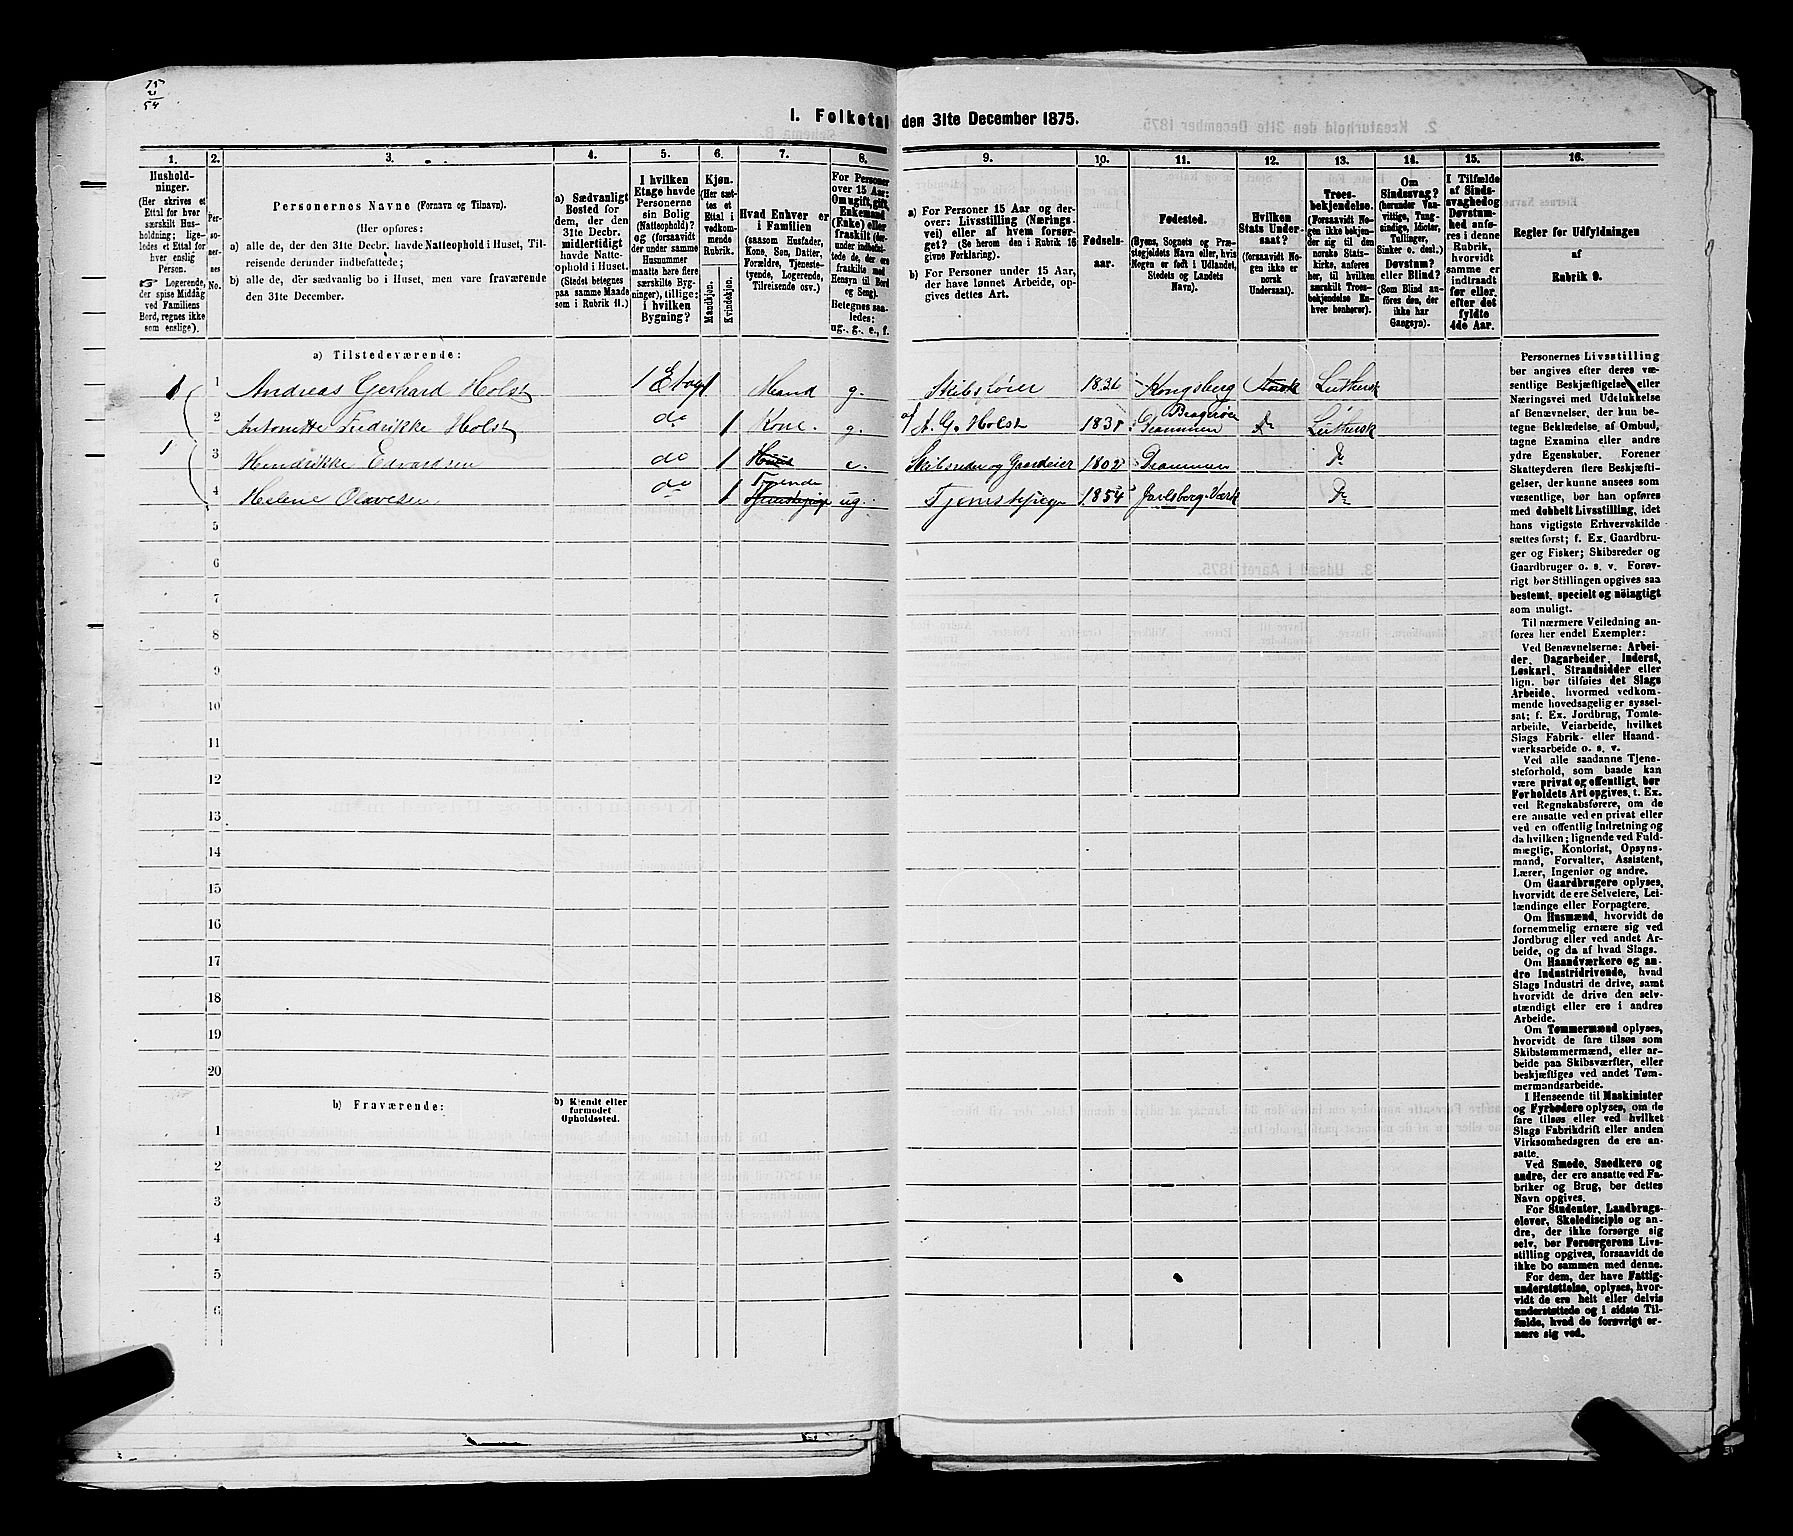 15
54
I. Folketal den 31te December 1875.
1. 2. 3. 4. 5. 6. 7. 8. 9. 10. 11. 12. 13. 14. 15. 16.
Hushold-
ninger.
(Her skrives et
Ettal for hver
særskilt Hus-
holdning; lige-
ledes et Ettal for
hver enslig
Person.
Logerende,
der spise Middag
ved Familiens
Bord, regnes ikke
som enslige).
Per-
so-
ner-
nes
No.
Personernes Navne (Fornavn og Tilnavn).
(Her opføres:
a) alle de, der den 31te Decbr. havde Natteophold i Huset, Til-
reisende derunder indbefattede;
b) alle de, der sædvanlig bo i Huset, men vare fraværende
den 31te December.
a) Sædvanligt
Bosted for
dem, der den
31te Decbr.
midlertidigt
havde Natte-
ophold i Huset.
(Stedet betegnes
paa samme Maade
som i Rubrik 11.)
I hvilken
Etage havde
Personerne
sin Bolig
(Natteophold)?
og (forsaavidt
der under samme
Husnummer
maatte høre flere
særskilte Byg-
ninger), tillige:
i hvilken
Bygning?
Kjøn.
(Her sæt-
tes et
Ettal i
vedkom-
mende
Rubrik.)
Mandkjøn.
Kvindekjøn.
Hvad Enhver er
i Familien
(saasom Husfader,
Kone, Søn, Datter,
Forældre, Tjeneste-
tyende, Logerende,
Tilreisende osv.)
For Personer
over 15 Aar:
Om ugift, gift,
Enkemand
(Enke) eller
fraskilt (der-
under indbefat-
tede de, der ere
fraskilte med
Hensyn til Bord
og Seng).
Betegnes saa-
ledes:
ug., g., e., f.
a) For Personer 15 Aar og der-
over: Livsstilling (Nærings-
vei) eller af hvem forsør-
get? (Se herom den i Rubrik 16
givne Forklaring).
b) For Personer under 15 Aar,
der have lønnet Arbeide, op-
gives dettes Art.
Fødsels-
aar.
Fødested.
(Byens, Sognets og Præ-
stegjeldets Navn eller, hvis
Nogen er født i Udlandet,
Stedets og Landets
Navn).
Hvilken
Stats Under-
saat?
(forsaavidt No-
gen ikke er
norsk
Undersaat).
Troes-
bekjendelse.
(Forsaavidt No-
gen ikke bekjen-
der sig til den
norske Stats-
kirke, anføres
her, til hvilken
særskilt Troes-
bekjendelse En-
hver henhører).
Om
Sindssvag?
(herunder Van-
vittige, Tung-
sindige, Idioter,
Tullinger,
Sinker o. desl.)
Døvstum?
eller Blind?
(Som Blind an-
føres den, der
ikke har
Gangsyn).
I Tilfælde
af Sinds-
svaghed og
Døvstum-
hed anfø-
res i denne
Rubrik,
hvorvidt
samme er
indtraadt
før eller
efter det
fyldte
4de Aar.
Regler for Udfyldningen
af
Rubrik 9.
a) Tilstedeværende:
1 1 Andreas Gerhard Holst 1 Etage 1 Mand g. 1836 Kongsberg Norsk Luthersk
2 Antonette Fredrikke Holst do 1 Kone g. af A. G. Holst Drammen Do Luthersk
1 3 Hendrikke Edvardsen do 1 e. Skibsreder og Gaardeier 1802 Drammen Do
4 Helene Olavesen do 1 Tjenende ug. Tjenestepige 1854 Jarlsberg Værk Do
5
6
7
8
9
10
11
12
13
14
15
16
17
18
19
20
b) Fraværende:
b) Kjendt eller
formodet
Opholdssted.
1
2
3
4
5
6
Personernes Livsstilling
bør angives efter deres væ-
sentlige Beskjæftigelse eller
Næringsvei med Udelukkelse
af Benævnelser, der kun be-
tegne Beklædelse, af Ombud,
tagne Examina eller andre
ydre Egenskaber. Forener
Skatteyderen flere Beskjæfti-
gelser, der kunne ansees som
væsentlige, bør han opføres
med dobbelt Livsstilling, idet
hans vigtigste Erhvervskilde
sættes først; f. Ex. Gaardbru-
ger og Fisker; Skibsreder og
Gaardbruger o. s. v. Forøv-
rigt bør Stillingen opgives saa
bestemt, specielt og nøiagtigt
som muligt.
Til nærmere Veiledning an-
føres her endel Exempler:
Ved Benævnelserne: Arbei-
der, Dagarbeider, Inderst,
Løskarl, Strandsidder eller
lign. bør tilføies det Slags
Arbeide, hvormed vedkom-
mende hovedsagelig er syssel-
sat; f. Ex. Jordbrug, Tomte-
arbeide, Veiarbeide, hvilket
Slags Fabrik- eller Haand-
værksarbeide o. s. v.
Ved alle saadanne Tjene-
steforhold, som baade kan
være privat og offentligt, bør
Forholdets Art opgives, t. Ex.
ved Regnskabsførere, om de
ere ansatte ved en privat eller
ved en offentlig Indretning og
da hvilken; lignende ved Fuld-
mægtig, Kontorist, Opsyns-
mand, Forvalter, Assistent,
Lærer, Ingeniør og andre.
Om Gaardbrugere oplyses,
hvorvidt de ere Selveiere, Lei-
lændinge eller Forpagtere.
Om Husmænd, hvorvidt de
fornemmelig ernære sig ved
Jordbrug eller ved andet Ar-
beide, og da af hvad Slags.
Om Haandværkere og an-
dre Industridrivende, hvad
Slags Industri de drive, samt
hvorvidt de drive den selv-
stændigt eller ere i andres
Arbeide.
Om Tømmermænd oplyses,
hvorvidt de fare tilsøs som
Skibstømmermænd, eller ar-
beide paa Skibsværfter, eller
beskjæftiges ved andet Tøm-
mermandsarbeide.
I Henseende til Maskinister
og Fyrbødere oplyses, om de
fare tilsøs eller ved hvilket
Slags Fabrikdrift eller anden
Virksomhedsgren de ere an-
satte.
Ved Smede, Snedkere og
andre, der ere ansatte ved Fa-
briker og Brug, bør dettes
Navn opgives.
For Studenter, Landbrugs-
elever, Skoledisciple og an-
dre, der ikke forsørge sig
selv, bør Forsørgerens Livs-
stilling opgives, forsaavidt de
ikke bo sammen med denne.
For dem, der have Fattig-
understøttelse, oplyses, hvor-
vidt de ere helt eller delvis
understøttede og i sidste Til-
fælde, hvad de forøvrigt er-
nære sig ved.